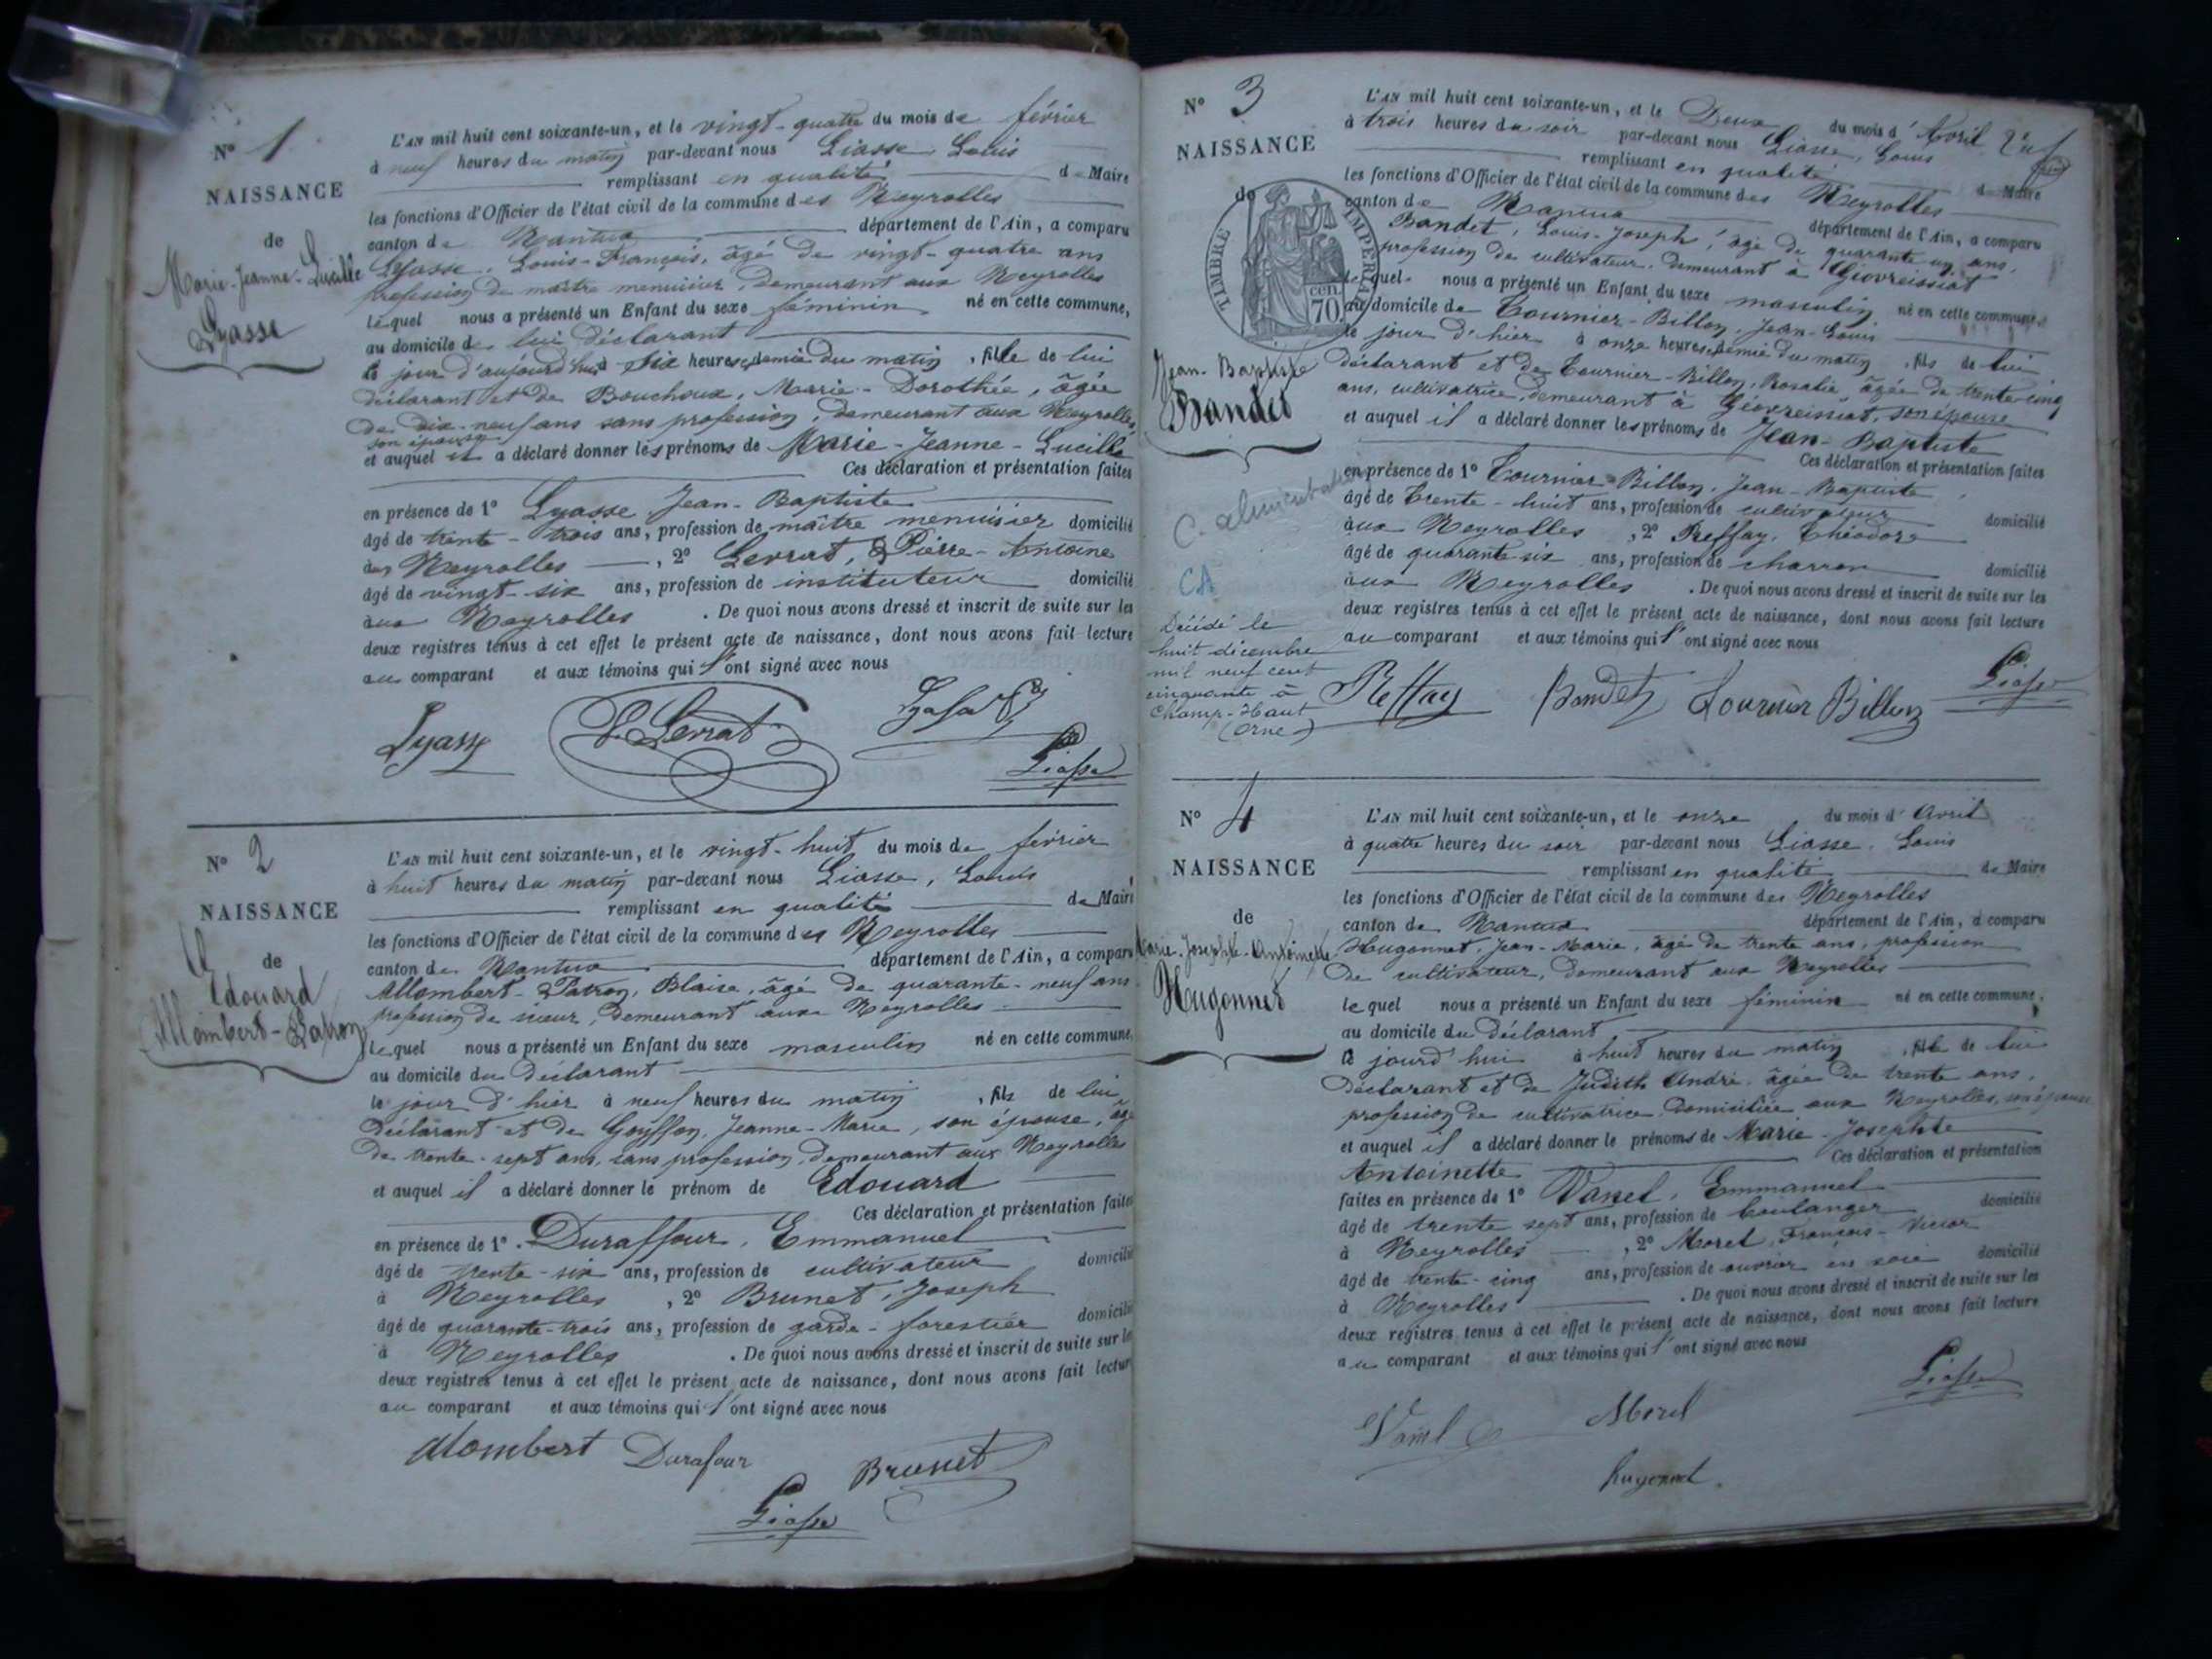 N° 1
NAISSANCE
de
Marie-Jeanne-Lucille
Lyasse
L'AN mil huit cent soixante-un, et le vingt-quatre du mois de février
à neuf heures du matin par-devant nous Liasse Louis
remplissant en qualité de Maire
les fonctions d'Officier de l'état civil de la commune des Neyrolles
canton de Nantua département de l'Ain, a comparu
Lyasse, Louis-François, âgé de vingt-quatre ans
profession de maître menuisier, demeurant aux Neyrolles
lequel nous a présenté un Enfant du sexe féminin né en cette commune,
au domicile de lui déclarant
le jour d'aujourd'hui à six heures et demie du matin, fille de lui
déclarant et de Bouchoux, Marie-Dorothée, âgée
de dix-neuf ans sans profession, demeurant aux Neyrolles,
son épouse
et auquel il a déclaré donner les prénoms de Marie-Jeanne-Lucille
Ces déclaration et présentation faites
en présence de 1° Lyasse Jean-Baptiste
âgé de trente-trois ans, profession de maître menuisier domicilié
aux Neyrolles, 2° Levrat, Pierre-Antoine
âgé de vingt-six ans, profession de instituteur domicilié
aux Neyrolles. De quoi nous avons dressé et inscrit de suite sur les
deux registres tenus à cet effet le présent acte de naissance, dont nous avons fait lecture
au comparant et aux témoins qui l'ont signé avec nous
Lyasse Levrat
Liasse
N° 2
NAISSANCE
de
Edouard
Allombert-Patron
L'AN mil huit cent soixante-un, et le vingt-huit du mois de février
à huit heures du matin par-devant nous Liasse, Louis
remplissant en qualité de Maire
les fonctions d'Officier de l'état civil de la commune des Neyrolles
canton de Nantua département de l'Ain, a comparu
Allombert-Patron, Blaise, âgé de quarante-neuf ans
profession de scieur, demeurant aux Neyrolles
lequel nous a présenté un Enfant du sexe masculin né en cette commune,
au domicile du déclarant
le jour d'hier à neuf heures du matin, fils de lui
déclarant et de Gouffon, Jeanne-Marie, son épouse, âgée
de trente-sept ans, sans profession, demeurant aux Neyrolles
et auquel il a déclaré donner le prénom de Edouard
Ces déclaration et présentation faites
en présence de 1° Duraffour, Emmanuel
âgé de trente-six ans, profession de cultivateur domicilié
à Neyrolles, 2° Brunet, Joseph
âgé de quarante-trois ans, profession de garde-forestier domicilié
à Neyrolles. De quoi nous avons dressé et inscrit de suite sur les
deux registres tenus à cet effet le présent acte de naissance, dont nous avons fait lecture
au comparant et aux témoins qui l'ont signé avec nous
Alombert Durafour Brunet
Liasse
N° 3
NAISSANCE
de
TIMBRE IMPÉRIAL
70 cen.
Jean-Baptiste
Bandet
CA
Décédé le
huit décembre
mil neuf cent
cinquante à
Champ-Haut
(Orne)
L'AN mil huit cent soixante-un, et le Deux du mois d'Avril
à trois heures du soir par-devant nous Liasse, Louis
remplissant en qualité de Maire
les fonctions d'Officier de l'état civil de la commune des Neyrolles
canton de Nantua département de l'Ain, a comparu
Bandet, Louis-Joseph, âgé de quarante un ans,
profession de cultivateur, demeurant à Géovreissiat
lequel nous a présenté un Enfant du sexe masculin né en cette commune,
au domicile de Tournier-Billon, Jean-Louis
le jour d'hier à onze heures et demie du matin, fils de lui
déclarant et de Tournier-Billon, Rosalie âgée de trente-cinq
ans, cultivatrice, demeurant à Géovreissiat, son épouse
et auquel il a déclaré donner les prénoms de Jean-Baptiste
Ces déclaration et présentation faites
en présence de 1° Tournier-Billon, Jean-Baptiste
âgé de trente-huit ans, profession de cultivateur domicilié
aux Neyrolles, 2° Reffay, Théodore
âgé de quarante six ans, profession de charron domicilié
aux Neyrolles. De quoi nous avons dressé et inscrit de suite sur les
deux registres tenus à cet effet le présent acte de naissance, dont nous avons fait lecture
au comparant et aux témoins qui l'ont signé avec nous
Reffay Bandet Tournier Billon Liasse
N° 4
NAISSANCE
de
Marie-Josephte-Antoinette
Hugonnet
L'AN mil huit cent soixante-un, et le onze du mois d'Avril
à quatre heures du soir par-devant nous Liasse, Louis
remplissant en qualité de Maire
les fonctions d'Officier de l'état civil de la commune des Neyrolles
canton de Nantua département de l'Ain, a comparu
Hugonnet, Jean-Marie, âgé de trente ans, profession
de cultivateur, demeurant aux Neyrolles
lequel nous a présenté un Enfant du sexe féminin né en cette commune,
au domicile du déclarant
le jourd'hui à huit heures du matin, fille de lui
déclarant et de Judith André, âgée de trente ans,
profession de cultivatrice, domiciliée aux Neyrolles, son épouse
et auquel il a déclaré donner le prénoms de Marie-Josephte
Antoinette Ces déclaration et présentation
faites en présence de 1° Vanel, Emmanuel
âgé de trente sept ans, profession de boulanger domicilié
à Neyrolles, 2° Morel, François-Victor
âgé de trente-cinq ans, profession de ouvrier en soie domicilié
à Neyrolles. De quoi nous avons dressé et inscrit de suite sur les
deux registres tenus à cet effet le présent acte de naissance, dont nous avons fait lecture
au comparant et aux témoins qui l'ont signé avec nous
Vanel Morel Liasse
hugonnet